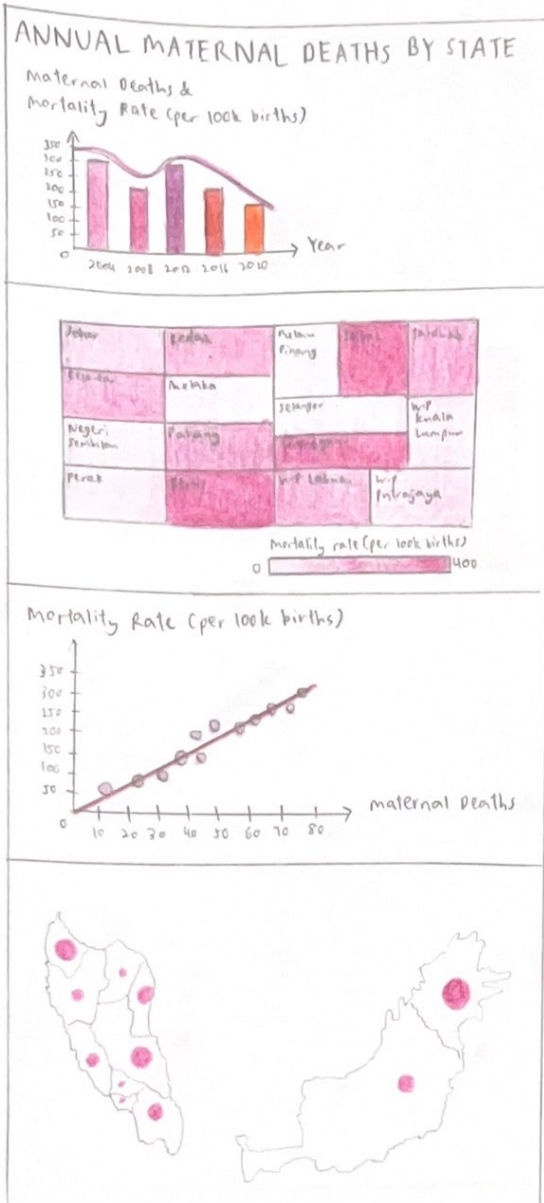 ANNUAL MATERNAL DEATHS BY STATE
Maternal Deaths &
Mortality Rate (per 100k births)
350
300
250
200
150
100
50
0
Year
2004 2008 2012 2016 2020
Johor
Kedah
Pulau
Pinang
Sarawak
Kelantan
Melaka
Selangor
W.P
Kuala
Lumpur
Negeri
Sembilan
Pahang
Terengganu
Perak
Perlis
W.P Labuan
W.P
Putrajaya
Mortality rate (per 100k births)
0 400
Mortality Rate (per 100k births)
350
300
250
200
150
100
50
0
maternal Deaths
10 20 30 40 50 60 70 80